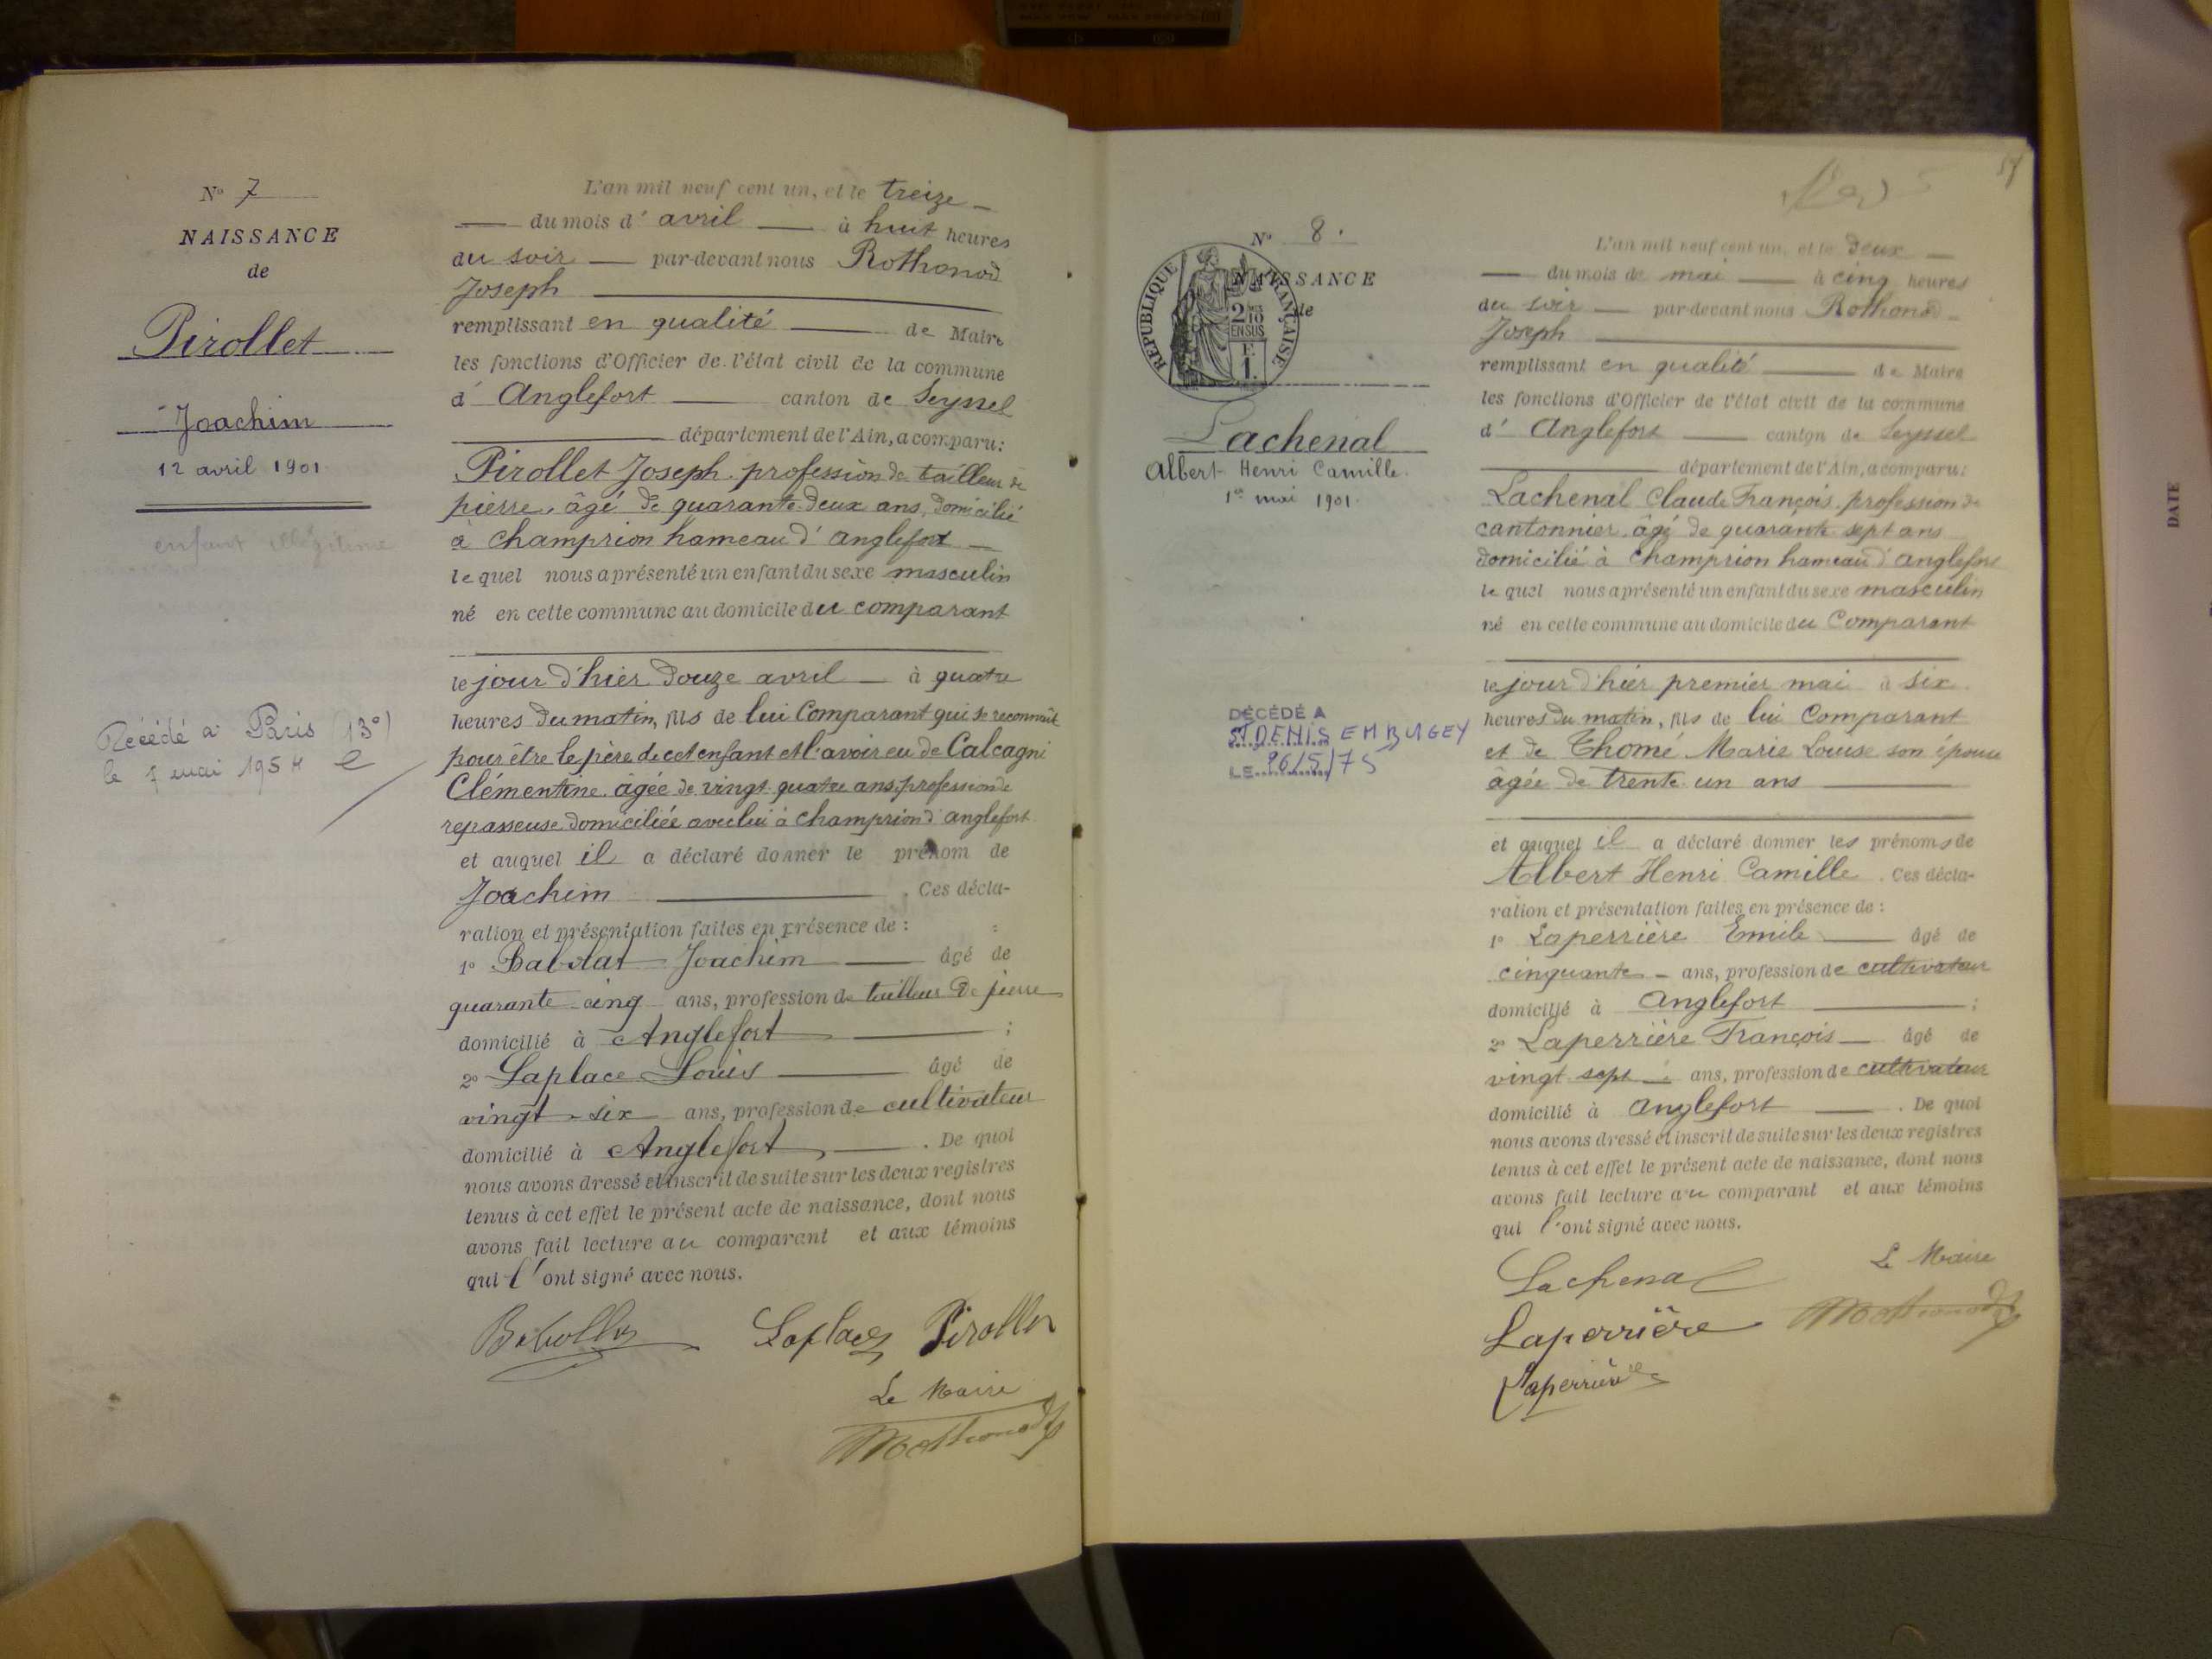 N° 7
NAISSANCE
de
Pirollet
Joachim
12 avril 1901
enfant illégitime
Décédé à Paris (13e)
le 7 mai 1954
L'an mil neuf cent un, et le treize
du mois d' avril à huit heures
du soir par-devant nous Rothonod
Joseph
remplissant en qualité de Maire
les fonctions d'Officier de l'état civil de la commune
d' Anglefort canton de Seyssel
département de l'Ain, a comparu:
Pirollet Joseph, profession de tailleur de
pierre, âgé de quarante-deux ans, domicilié
à Champrion hameau d'Anglefort
lequel nous a présenté un enfant du sexe masculin
né en cette commune au domicile du comparant
le jour d'hier douze avril à quatre
heures du matin, fils de lui Comparant qui se reconnaît
pour être le père de cet enfant et l'avoir eu de Calcagni
Clémentine, âgée de vingt-quatre ans, profession de
repasseuse domiciliée avec lui à Champrion d'Anglefort
et auquel il a déclaré donner le prénom de
Joachim. Ces décla-
ration et présentation faites en présence de :
1° Joachim âgé de
quarante-cinq ans, profession de tailleur de pierre
domicilié à Anglefort ;
2° Laplace Louis âgé de
vingt-six ans, profession de cultivateur
domicilié à Anglefort. De quoi
nous avons dressé et inscrit de suite sur les deux registres
tenus à cet effet le présent acte de naissance, dont nous
avons fait lecture au comparant et aux témoins
qui l'ont signé avec nous.
Laplace Pirollet
Le Maire
Rothonod
N° 8.
REPUBLIQUE FRANÇAISE
2/10 EN SUS
E
1.
NAISSANCE
de
Lachenal
Albert Henri Camille.
1er mai 1901
DÉCÉDÉ A
ST DENIS EM BUGEY
LE 26/5/75
L'an mil neuf cent un, et le deux
du mois de mai à cinq heures
du soir par-devant nous Rothonod
Joseph
remplissant en qualité de Maire
les fonctions d'Officier de l'état civil de la commune
d' Anglefort canton de Seyssel
département de l'Ain, a comparu:
Lachenal Claude François, profession de
cantonnier, âgé de quarante-sept ans
domicilié à Champrion hameau d'Anglefort
lequel nous a présenté un enfant du sexe masculin
né en cette commune au domicile du Comparant
le jour d'hier premier mai à six
heures du matin, fils de lui Comparant
et de Thomé Marie Louise son épouse
âgée de trente-un ans
et auquel il a déclaré donner les prénoms de
Albert Henri Camille. Ces décla-
ration et présentation faites en présence de :
1° Laperrière Emile âgé de
cinquante ans, profession de cultivateur
domicilié à Anglefort ;
2° Laperrière François âgé de
vingt-sept ans, profession de cultivateur
domicilié à Anglefort. De quoi
nous avons dressé et inscrit de suite sur les deux registres
tenus à cet effet le présent acte de naissance, dont nous
avons fait lecture au comparant et aux témoins
qui l'ont signé avec nous.
Lachenal
Le Maire
Laperrière Rothonod
Laperrière
DATE